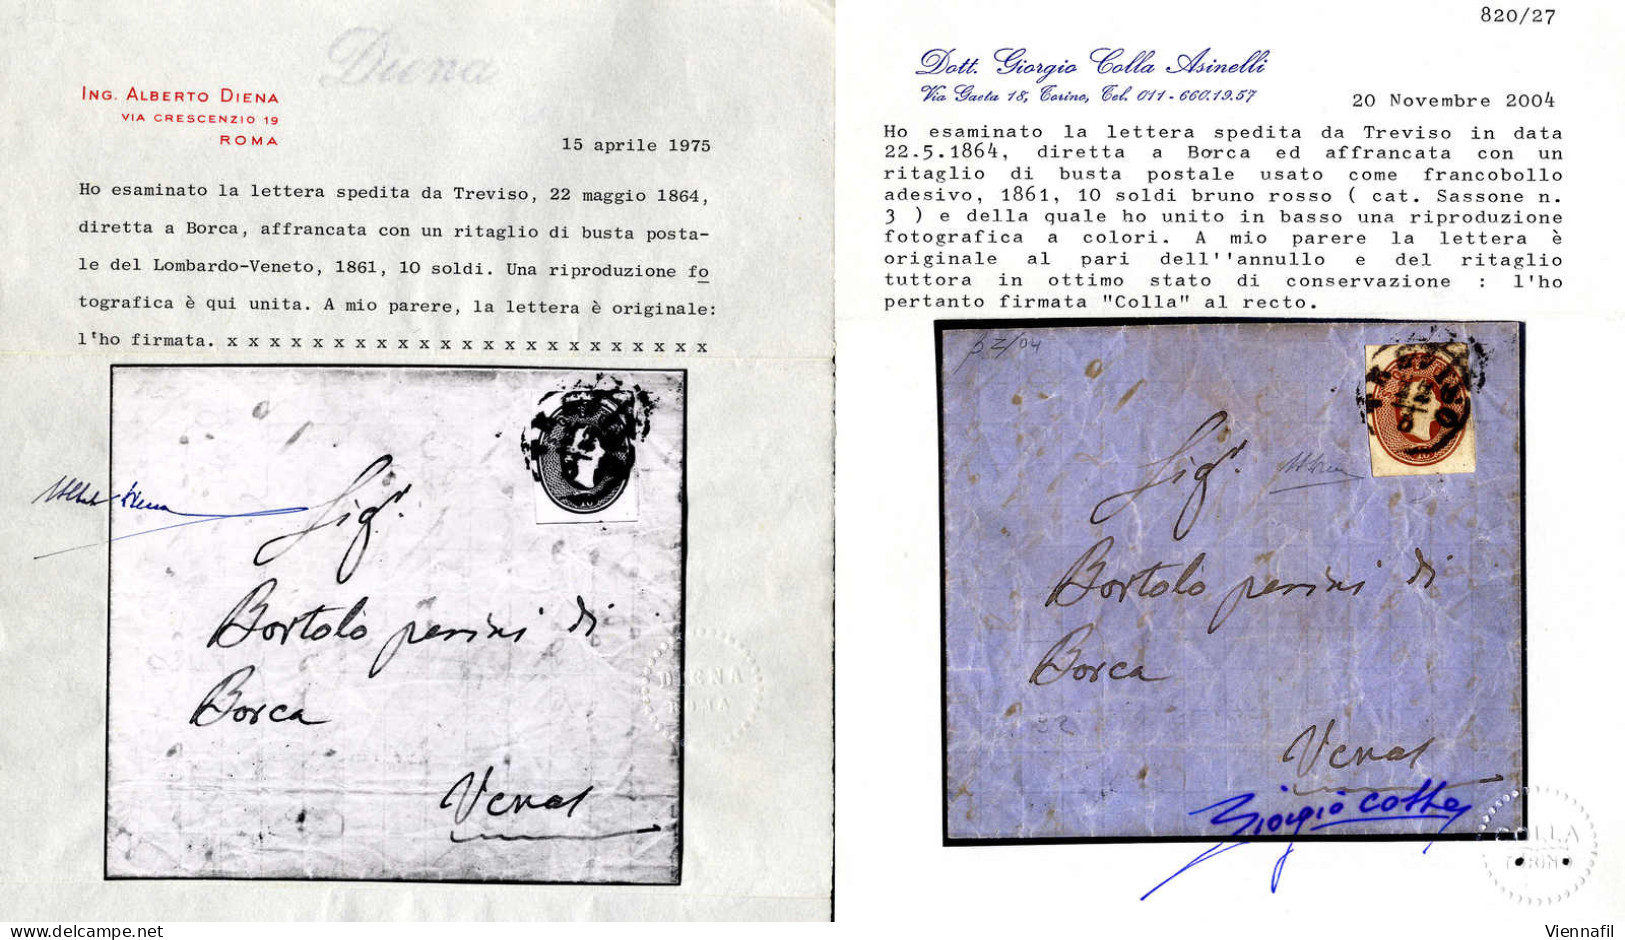 Diena
ING. ALBERTO DIENA
VIA CRESCENZIO 19
ROMA
15 aprile 1975
Ho esaminato la lettera spedita da Treviso, 22 maggio 1864,
diretta a Borca, affrancata con un ritaglio di busta posta-
le del Lombardo-Veneto, 1861, 10 soldi. Una riproduzione fo
tografica è qui unita. A mio parere, la lettera è originale:
l'ho firmata. x x x x x x x x x x x x x x x x x x x x x x x
Sigr.
Bortolo perini di
Borca
Venas
DIENA
ROMA
820/27
Dott. Giorgio Colla Asinelli
Via Gaeta 18, Torino, Tel. 011-660.19.57
20 Novembre 2004
Ho esaminato la lettera spedita da Treviso in data
22.5.1864, diretta a Borca ed affrancata con un
ritaglio di busta postale usato come francobollo
adesivo, 1861, 10 soldi bruno rosso ( cat. Sassone n.
3 ) e della quale ho unito in basso una riproduzione
fotografica a colori. A mio parere la lettera è
originale al pari dell''annullo e del ritaglio
tuttora in ottimo stato di conservazione : l'ho
pertanto firmata "Colla" al recto.
Sigr.
Bortolo perini di
Borca
Venas
Giorgio Colla
COLLA
TORINO
www.delcampe.net
Viennafil